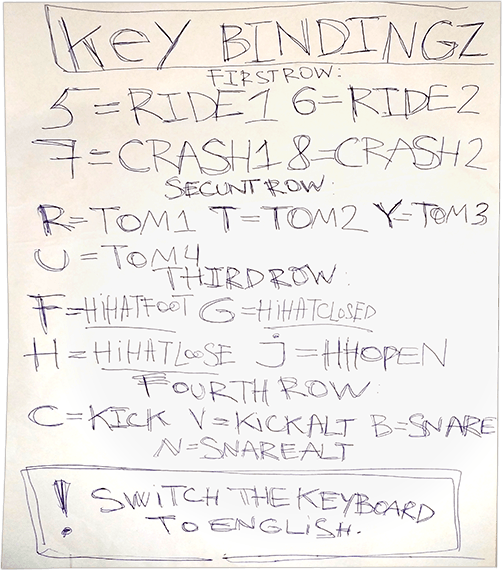 Key BINDINGZ
FIRST ROW:
5=RIDE1 6=RIDE2
7=CRASH1 8=CRASH2
SECUNT ROW:
R=TOM1 T=TOM2 Y=TOM3
U=TOM4
THIRD ROW:
F=HiHATFOOT G=HiHATCLOSED
H=HiHATLOOSE J=HHOPEN
FOURTH ROW:
C=KICK V=KiCKALT B=SNARE
N=SNAREALT
! SWITCH THE KEYBOARD
TO ENGLISH.